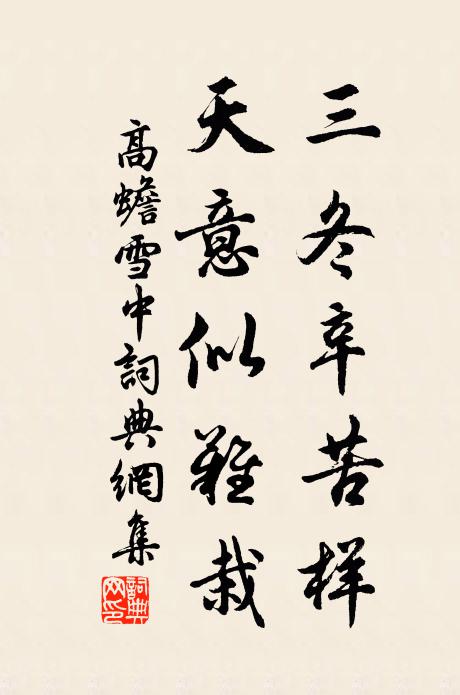 三冬辛苦样
天意似難栽
高蟾雪中詞典網集
詞典网印